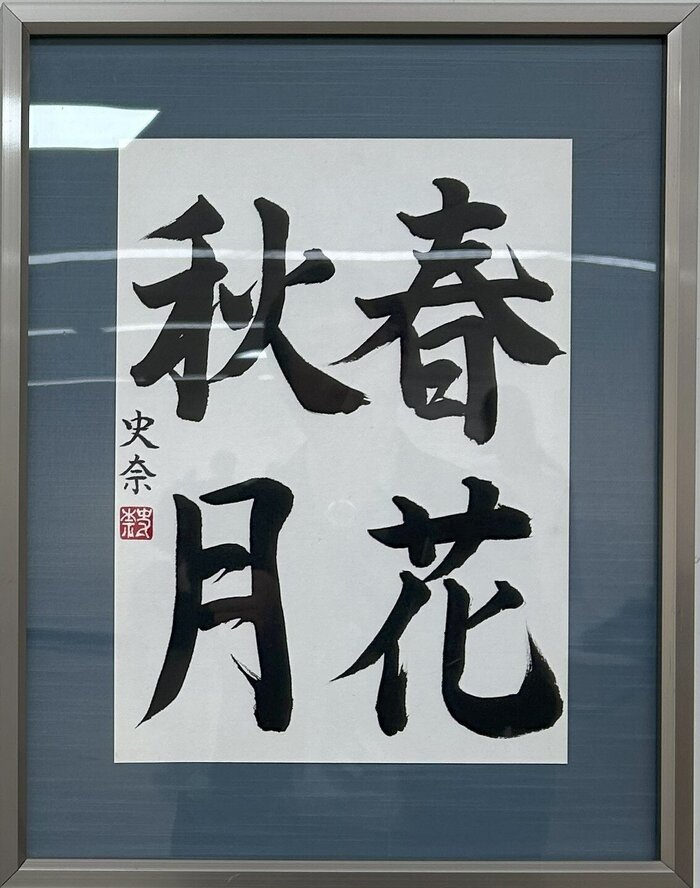 春花
秋月
史奈